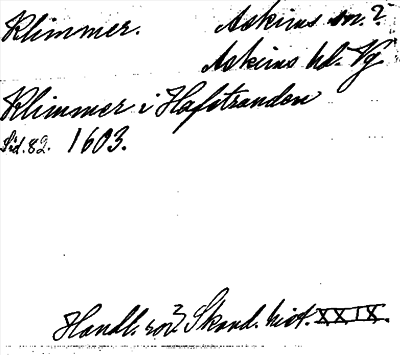 Klimmer. Askims sn.?
Askims hd. Vg
Klimmer i Hafstranden
Sid. 82. 1603.
Handl. rör. Skand. hist. XXIX.